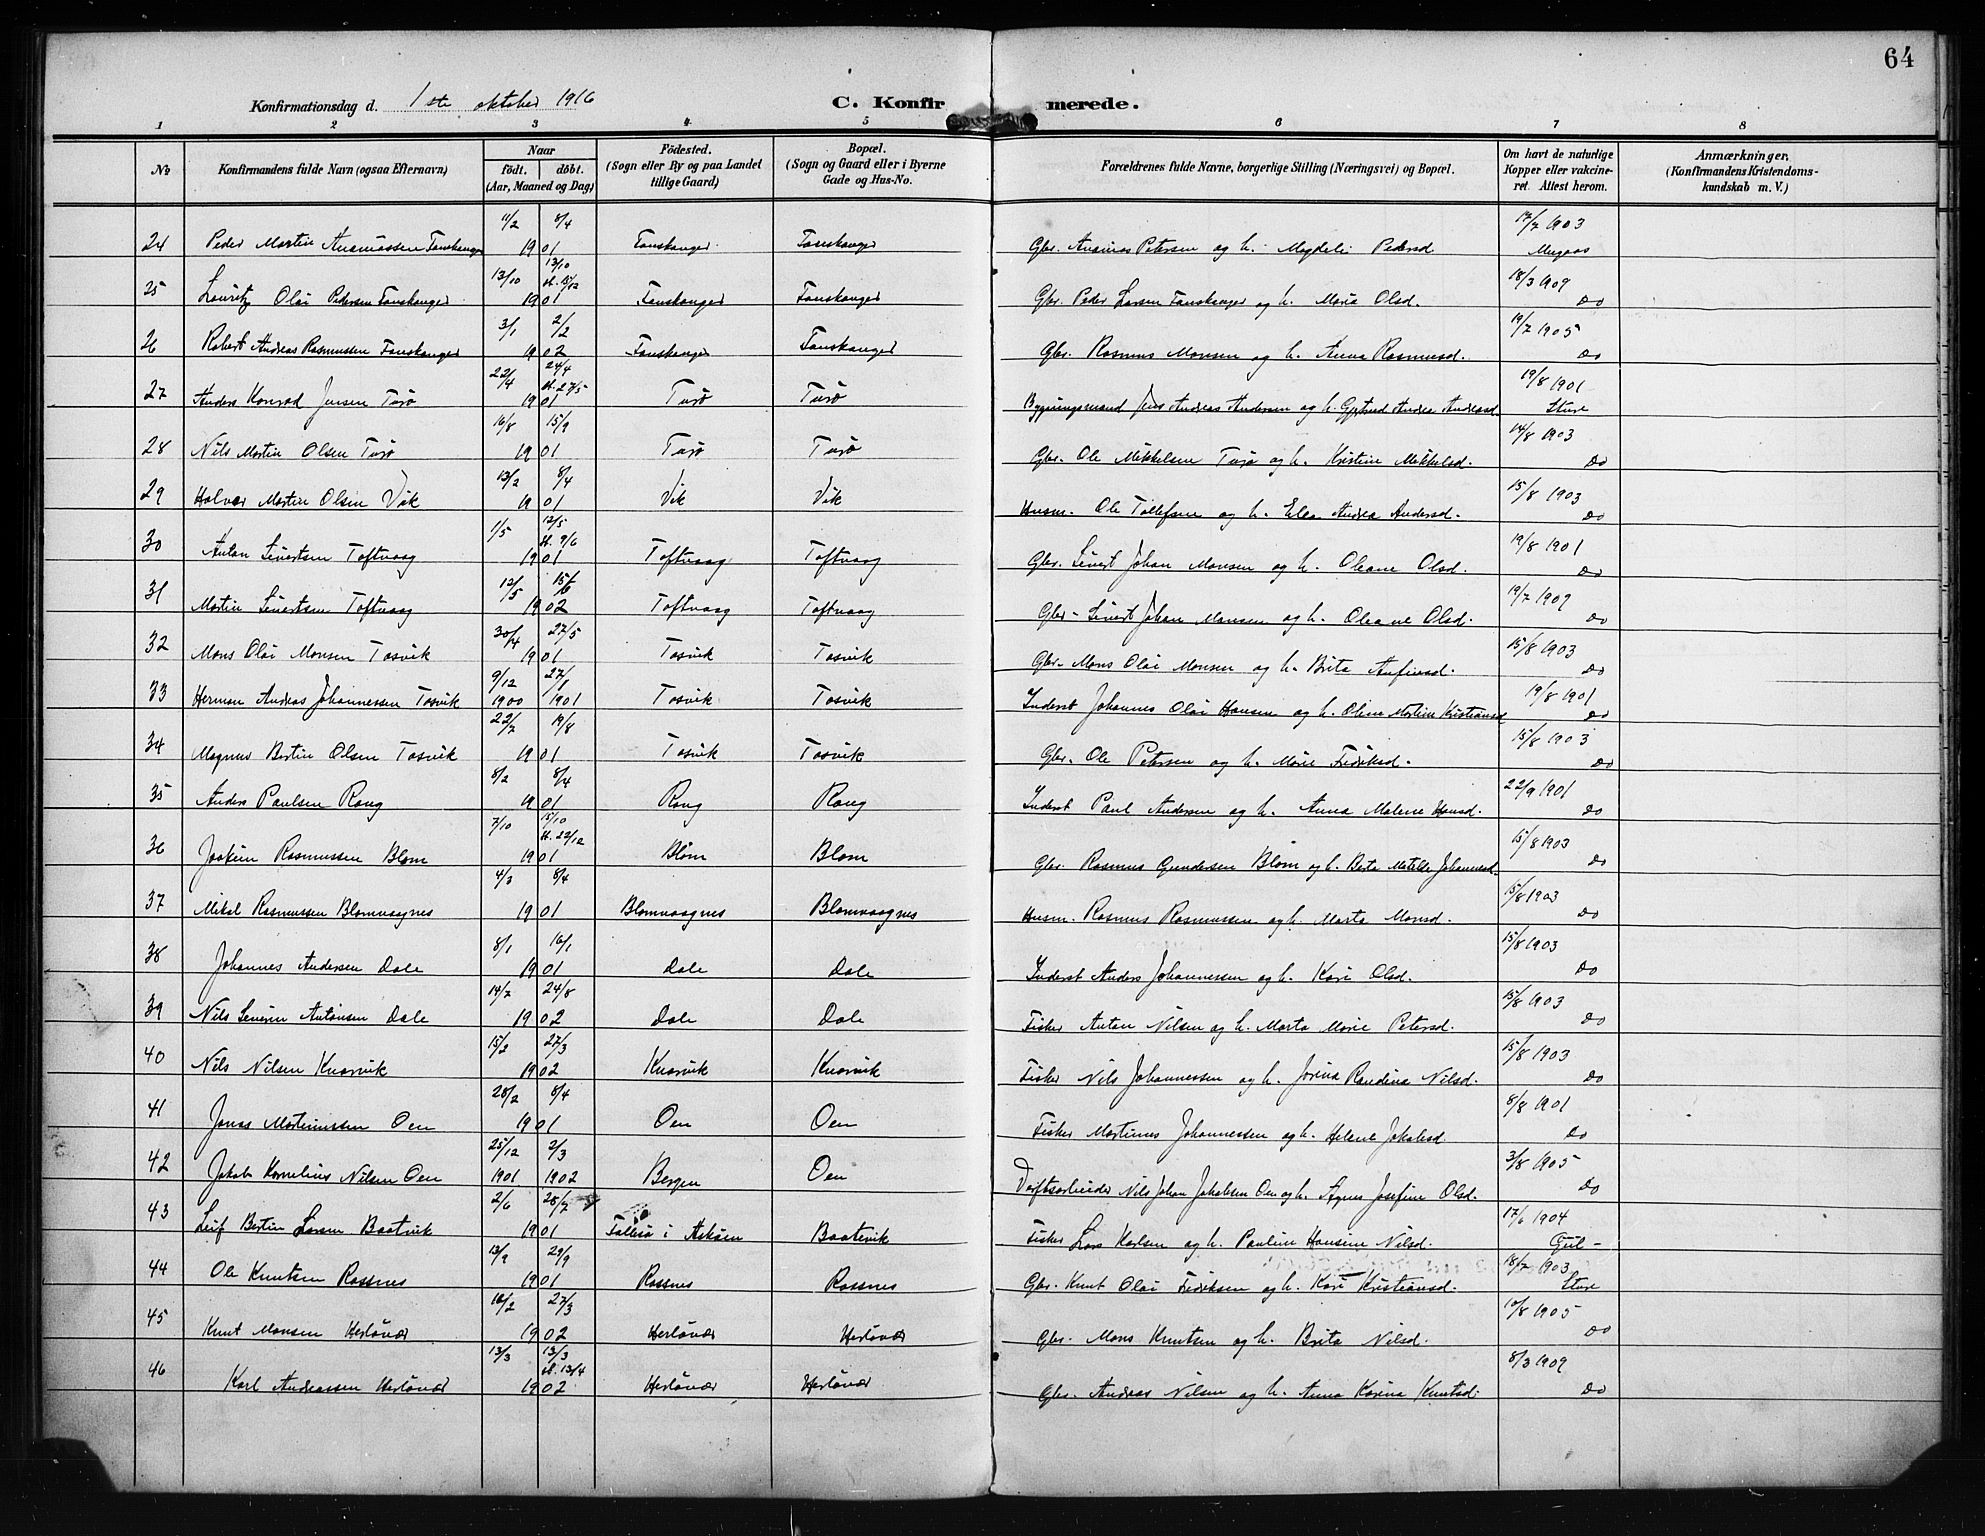 64
Konfirmationsdag d. 1ste oktober 1916
C. Konfirmerede.
1 2 3 4 5 6 7 8
No Konfirmandens fulde Navn (ogsaa Efternavn) Naar født. døbt. (Aar, Maaned og Dag) Fødested. (Sogn eller By og paa Landet tillige Gaard) Bopæl. (Sogn og Gaard eller i Byerne Gade og Hus-No. Forældrenes fulde Navne, borgerlige Stilling (Næringsvei) og Bopæl. Om havt de naturlige Kopper eller vakcineret. Attest herom. Anmærkninger. (Konfirmandens Kristendomskundskab m. V.)
24 Peder Martin Anamiassen Fonskanger 11/2 8/4 1901 Fonskanger Fonskanger Gbr. Ananias Petersen og h. Magdeli Pedersd 17/7 1903
25 Lauritz Olai Petersen Fonskanger 13/10 13/10 st. 15/12 1901 Fonskanger Fonskanger Gbr. Peder Larsen Fonskanger og h. Maria Olsd. 18/3 1909 Do
26 Robert Andreas Rasmussen Fonskanger 3/1 2/2 1902 Fonskanger Fonskanger Gbr. Rasmus Monsen og h. Anna Rasmusd. 19/7 1905 Do
27 Anders Konrad Jensen Turø 22/4 24/4 st. 27/5 1901 Turø Turø Bygningsmand Jens Andreas Andersen og h. Gjertrud Andrea Andreasd 19/8 1901 Sture
28 Nils Martin Olsen Turø 16/8 15/9 1901 Turø Turø Gbr. Ole Mikkelsen Turø og h. Kristine Mikkelsd. 14/8 1903 Do
29 Halvor Martin Olsen Vik 13/2 8/4 1901 Vik Vik Husm. Ole Tollefsen og h. Elen Andrea Andersd. 15/8 1903 Do
30 Anton Sivertsen Toftvaag 1/5 12/5 st. 9/6 1901 Toftvaag Toftvaag Gbr. Sivert Johan Monsen og h. Oleane Olsd. 19/8 1901 Do
31 Martin Sivertsen Toftvaag 12/5 15/6 1902 Toftvaag Toftvaag Gbr. Sivert Johan Monsen og h. Oleane Olsd. 19/7 1909 Do
32 Mons Olai Monsen Tosvik 30/4 27/5 1901 Tosvik Tosvik Gbr. Mons Olai Monsen og h. Brita Anfinsd. 15/8 1903 Do
33 Herman Andreas Johannessen Tosvik 9/12 1900 27/1 1901 Tosvik Tosvik Inderst Johannes Olai Hansen og h. Oline Martine Kristiansd 19/8 1901 Do
34 Magnus Bertin Olsen Tosvik 22/7 19/8 1901 Tosvik Tosvik Gbr. Ole Petersen og h. Marie Fredriksd. 15/8 1903 Do
35 Anders Paulsen Rong 8/2 8/4 1901 Rong Rong Inderst Paul Andersen og h. Anna Malene Hansd. 22/9 1901 Do
36 Joakim Rasmussen Blom 7/10 15/10 st. 22/12 1901 Blom Blom Gbr. Rasmus Gundersen Blom og h. Berta Matilde Johannesd. 15/8 1903 Do
37 Mikal Rasmussen Blomvaagnes 4/3 8/4 1901 Blomvaagnes Blomvaagnes Husm. Rasmus Rasmussen og h. Marta Monsd. 15/8 1903 Do
38 Johannes Andersen Dale 8/1 16/1 1901 Dale Dale Inderst Anders Johannessen og h. Kari Olsd. 15/8 1903 Do
39 Nils Severin Antonsen Dale 14/7 24/8 1902 Dale Dale Fisker Anton Nilsen og h. Marta Marie Petersd. 15/8 1903 Do
40 Nils Nilsen Knarvik 15/2 27/3 1902 Knarvik Knarvik Fisker Nils Johannessen og h. Jorina Randina Nilsd. 15/8 1903 Do
41 Jonas Martinussen Oen 28/2 8/4 1901 Oen Oen Fisker Martinus Johannessen og h. Helene Jakobsd 8/8 1901 Do
42 Jakob Kornelius Nilsen Oen 25/12 1901. 2/3 1902 Bergen Oen Nils Johan Jakobsen Oen og h. Agnes Josefine Olsd. 3/8 1905 Do
43 Leif Bertin Larsen Baatvik 2/6 28/7 1901 Follesø i Askøen Baatevik Fisker Lars Karlsen og h. Pauline Hansine Nilsd. 17/6 1904
44 Ole Knutsen Rossnes 13/9 29/9 1901 Rossnes Rossnes Gbr. Knut Olai Fredriksen og h. Kari Kristiansd. 18/7 1903 Sture
45 Knut Monsen Herløvær 16/2 27/3 1902 Herløvær Herløvær Gbr. Mons Knutsen og h. Brita Nilsd. 10/8 1905 Do
46 Karl Andreassen Herløvær 13/3 13/3 st. 13/4 1902 Herløvær Herløvær Gbr. Andreas Nilsen og h. Anna Karina Knutsd. 8/3 1909 Do